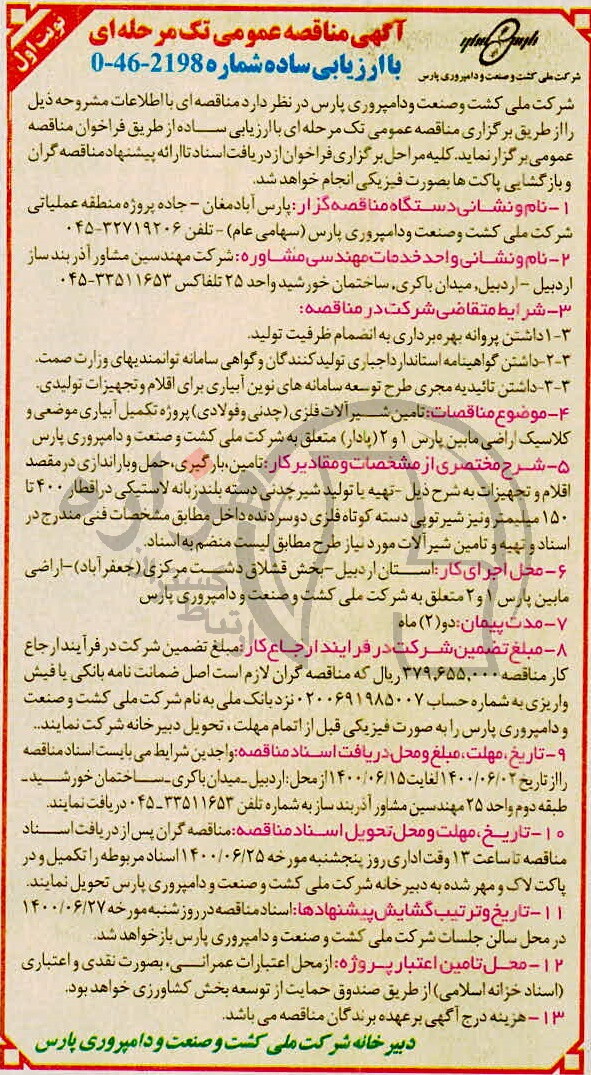 نوبت اول
آگهی مناقصه عمومی تک مرحله ای
با ارزیابی ساده شماره 2198-46-0
شرکت ملی کشت و صنعت و دامپروری پارس
شرکت ملی کشت و صنعت و دامپروری پارس در نظر دارد مناقصه ای با اطلاعات مشروحه ذیل
را از طریق برگزاری مناقصه عمومی تک مرحله ای با ارزیابی ساده از طریق فراخوان مناقصه
عمومی برگزار نماید. کلیه مراحل برگزاری فراخوان از دریافت اسناد تا ارائه پیشنهاد مناقصه گران
و بازگشایی پاکت ها بصورت فیزیکی انجام خواهد شد.
۱-نام و نشانی دستگاه مناقصه گزار: پارس آباد مغان - جاده پروژه منطقه عملیاتی
شرکت ملی کشت و صنعت و دامپروری پارس (سهامی عام) - تلفن ۳۲۷۱۹۲۰۶-۰۴۵
۲-نام و نشانی واحد خدمات مهندسی مشاوره: شرکت مهندسین مشاور آذر بند ساز
اردبیل - اردبیل، میدان باکری، ساختمان خورشید واحد ۲۵ تلفاکس ۳۳۵۱۱۶۵۳-۰۴۵
۳-شرایط متقاضی شرکت در مناقصه:
۳-۱داشتن پروانه بهره برداری به انضمام ظرفیت تولید.
۳-۲-داشتن گواهینامه استاندارد اجباری تولیدکنندگان و گواهی سامانه توانمندیهای وزارت صمت.
۳-۳-داشتن تائیدیه مجری طرح توسعه سامانه های نوین آبیاری برای اقلام و تجهیزات تولیدی.
۴-موضوع مناقصات: تامین شیرآلات فلزی (چدنی و فولادی) پروژه تکمیل آبیاری موضعی و
کلاسیک اراضی مابین پارس ۱ و ۲ (پادار) متعلق به شرکت ملی کشت و صنعت و دامپروری پارس
۵-شرح مختصری از مشخصات و مقادیر کار: تامین، بارگیری، حمل و باراندازی در مقصد
اقلام و تجهیزات به شرح ذیل -تهیه یا تولید شیر چدنی دسته بلند زبانه لاستیکی در اقطار ۴۰۰ تا
۱۵۰ میلیمتر و نیز شیر توپی دسته کوتاه فلزی دو سر دنده داخل مطابق مشخصات فنی مندرج در
اسناد و تهیه و تامین شیرآلات مورد نیاز طرح مطابق لیست منضم به اسناد.
۶-محل اجرای کار: استان اردبیل -بخش قشلاق دشت مرکزی (جعفرآباد)-اراضی
مابین پارس ۱ و ۲ متعلق به شرکت ملی کشت و صنعت و دامپروری پارس
۷-مدت پیمان: دو (۲) ماه
۸-مبلغ تضمین شرکت در فرایند ارجاع کار: مبلغ تضمین شرکت در فرآیند ارجاع
کار مناقصه ۳۷۹,۶۵۵,۰۰۰ ریال که مناقصه گران لازم است اصل ضمانت نامه بانکی یا فیش
واریزی به شماره حساب ۰۲۰۰۶۹۱۹۸۵۰۰۷ نزد بانک ملی به نام شرکت ملی کشت و صنعت
و دامپروری پارس را به صورت فیزیکی قبل از اتمام مهلت، تحویل دبیرخانه شرکت نمایند..
۹-تاریخ، مهلت، مبلغ و محل دریافت اسناد مناقصه: واجدین شرایط می بایست اسناد مناقصه
را از تاریخ ۱۴۰۰/۰۶/۰۲ لغایت ۱۴۰۰/۰۶/۱۵ از محل: اردبیل-میدان باکری-ساختمان خورشید-
طبقه دوم واحد ۲۵ مهندسین مشاور آذر بند ساز به شماره تلفن ۳۳۵۱۱۶۵۳-۰۴۵ دریافت نمایند.
۱۰-تاریخ، مهلت و محل تحویل اسناد مناقصه: مناقصه گران پس از دریافت اسناد
مناقصه تا ساعت ۱۳ وقت اداری روز پنجشنبه مورخه ۱۴۰۰/۰۶/۲۵ اسناد مربوطه را تکمیل و در
پاکت لاک و مهر شده به دبیرخانه شرکت ملی کشت و صنعت و دامپروری پارس تحویل نمایند.
۱۱-تاریخ و ترتیب گشایش پیشنهادها: اسناد مناقصه در روز شنبه مورخه ۱۴۰۰/۰۶/۲۷
در محل سالن جلسات شرکت ملی کشت و صنعت و دامپروری پارس باز خواهد شد.
۱۲-محل تامین اعتبار پروژه: از محل اعتبارات عمرانی، بصورت نقدی و اعتباری
(اسناد خزانه اسلامی) از طریق صندوق حمایت از توسعه بخش کشاورزی خواهد بود.
۱۳-هزینه درج آگهی بر عهده برندگان مناقصه می باشد.
دبیرخانه شرکت ملی کشت و صنعت و دامپروری پارس